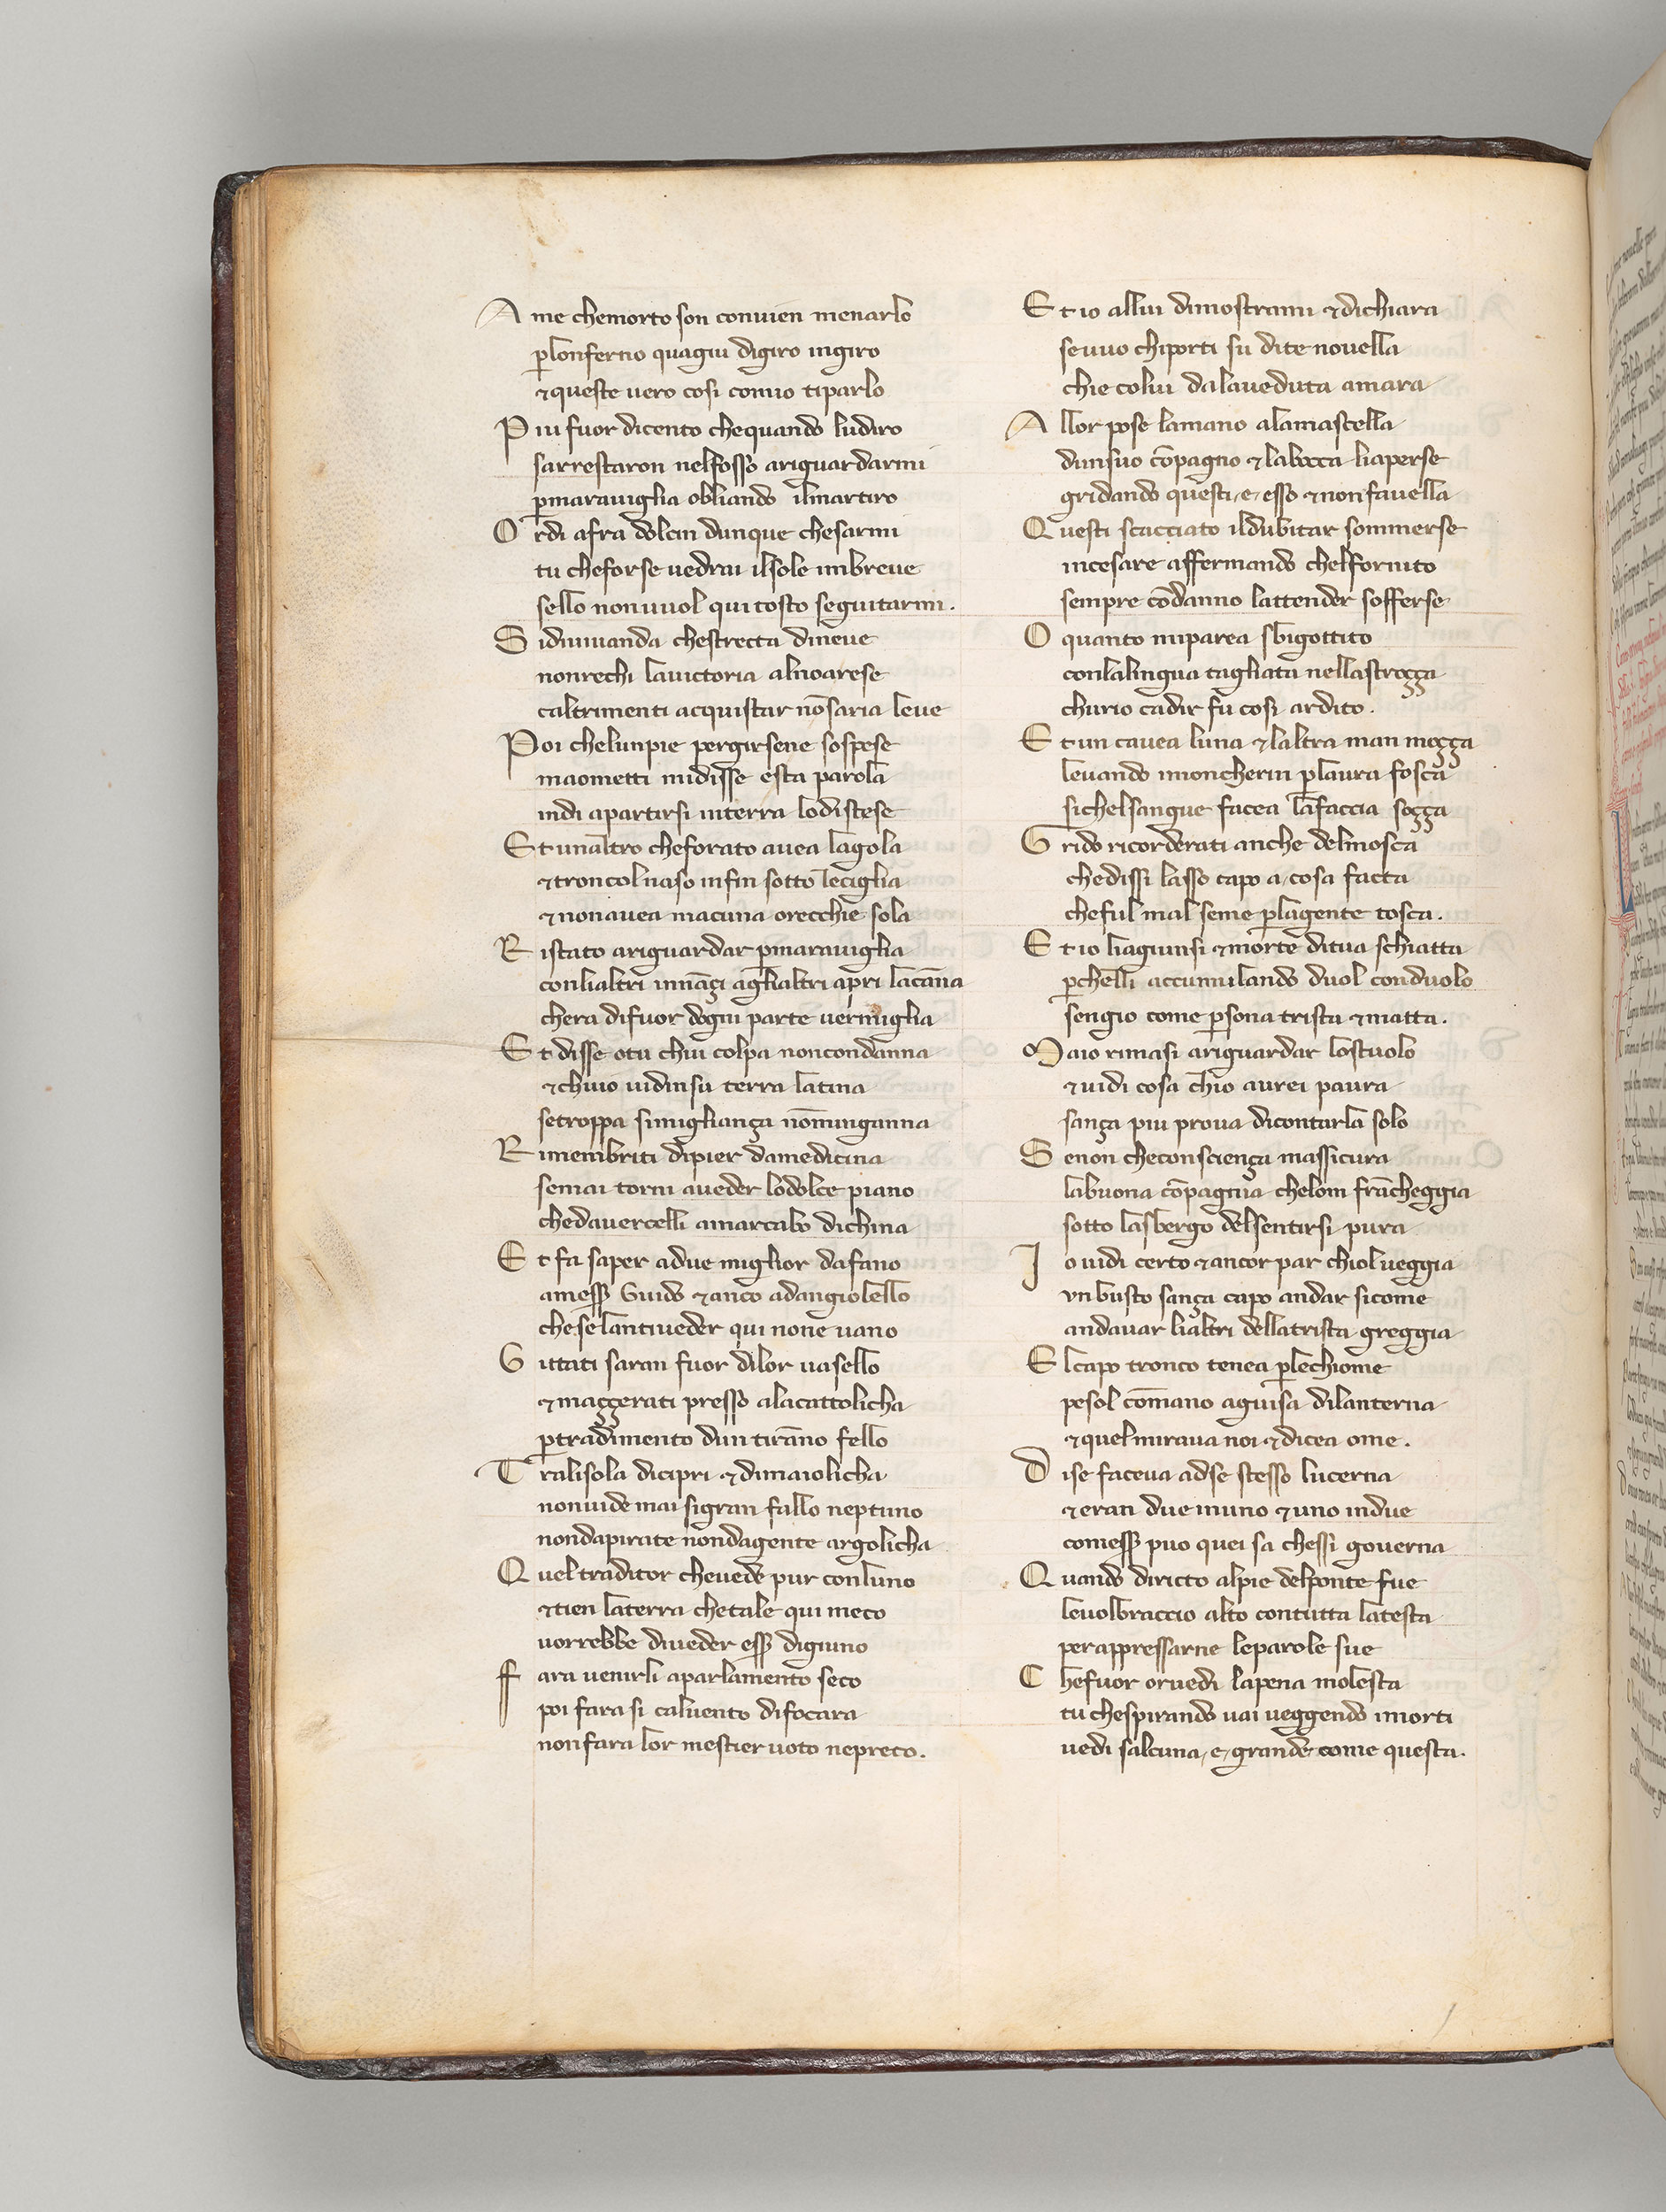 A me chemorto son convien menarlo
p̱lonferno quagiu digiro ingiro
⁊queste vero cosi comio tiparlo
P iu fuor dicento chequando ludiro
sarrestaron nelfosso ariguardarmi
p̱maraviglia obliando ilmartiro
O rdi afra dolcin dunque chesarmi
tu cheforse vedrai ilsole inbreve
sello nonvuol qui tosto seguitarmi.
S idivivanda chestrecta dineve
nonrechi lavictoria alnoarese
caltrimenti acquistar nōsaria leve
P oi chelunpie pergirsene sospese
maometti midisse esta parola
indi apartirsi interra lodistese
E t unaltro cheforato avea lagola
⁊troncolnaso infin sotto leciglia
⁊nonavea macuna orecchie sola
R istato ariguardar p̱maraviglia
conlialtri innāçi aglialtri apri lacāna
chera difuor dogni parte vermiglia
E t disse otu chui colpa noncondanna
⁊chuio vidinsu terra latina
setroppa simigliança nōminganna
R imembriti dipier damedicina
semai torni aveder lodolce piano
chedavercelli amarcabo dichina
E t fa saper adue miglior dafano
amess̱ Guido ⁊anco adangiolello
cheselantiveder qui none vano
G ittati saran fuor dilor vasello
⁊maççerati presso alacattolicha
p̱tradimento dun tirāno fello
T ralisola dicipri ⁊dimaiolicha
nonvide mai sigran fallo neptuno
nondapirate nondagente argolicha
Q uel traditor chevede pur conluno
⁊tien laterra chetale qui meco
vorrebbe diveder ess̱ digiuno
F ara venirli aparlamento seco
poi fara si calvento difocara
nonfara lor mestier voto nepreco.
E t io allui dimostrami ⁊dichiara
sevuo chiporti su dite novella
chie colui dalaveduta amara
A llor pose lamano alamascella
dunsuo cōpagno ⁊labocca liaperse
gridando questi, e, esso ⁊nonfavella
Q uesti scacciato ildubitar sommerse
incesare affermando chelfornito
sempre cōdanno lattender sofferse
O quanto miparea sbigottito
conlalingua tagliata nellastroçça
churio cadir fu cosi ardito.
E t un cavea luna ⁊laltra man moçça
levando imoncherin p̱laura fosca
sichelsangue facea lafaccia soçça
G rido ricorderati anche delmosca
chedissi lasso capo a, cosa facta
cheful mal seme p̱lagente tosca.
E t io liagiunsi ⁊morte ditua schiatta
p̱chelli accumulando duol conduolo
sengio come p̱sona trista ⁊matta.
M aio rimasi ariguardar lostuolo
⁊vidi cosa chio aurei paura
sança piu prova dicontarla solo
S enon checonsciença massicura
labuona cōpagnia chelom frācheggia
sotto lasbergo delsentirsi pura
I o vidi certo ⁊ancor par chiol veggia
vnbusto sança capo andar sicome
andavar lialtri dellatrista greggia
E lcapo tronco tenea p̱lechiome
pesol cōmano aguisa dilanterna
⁊quel mirava noi ⁊dicea ome.
D ise faceva adse stesso lucerna
⁊eran due inuno ⁊uno indue
comess̱ puo quei sa chessi governa
Q uando diricto alpie delponte fue
levolbraccio alto contutta latesta
perappressarne leparole sue
C hefuor orvedi lapena molesta
tu chespirando vai veggendo imorti
vedi salcuna, e, grande come questa.